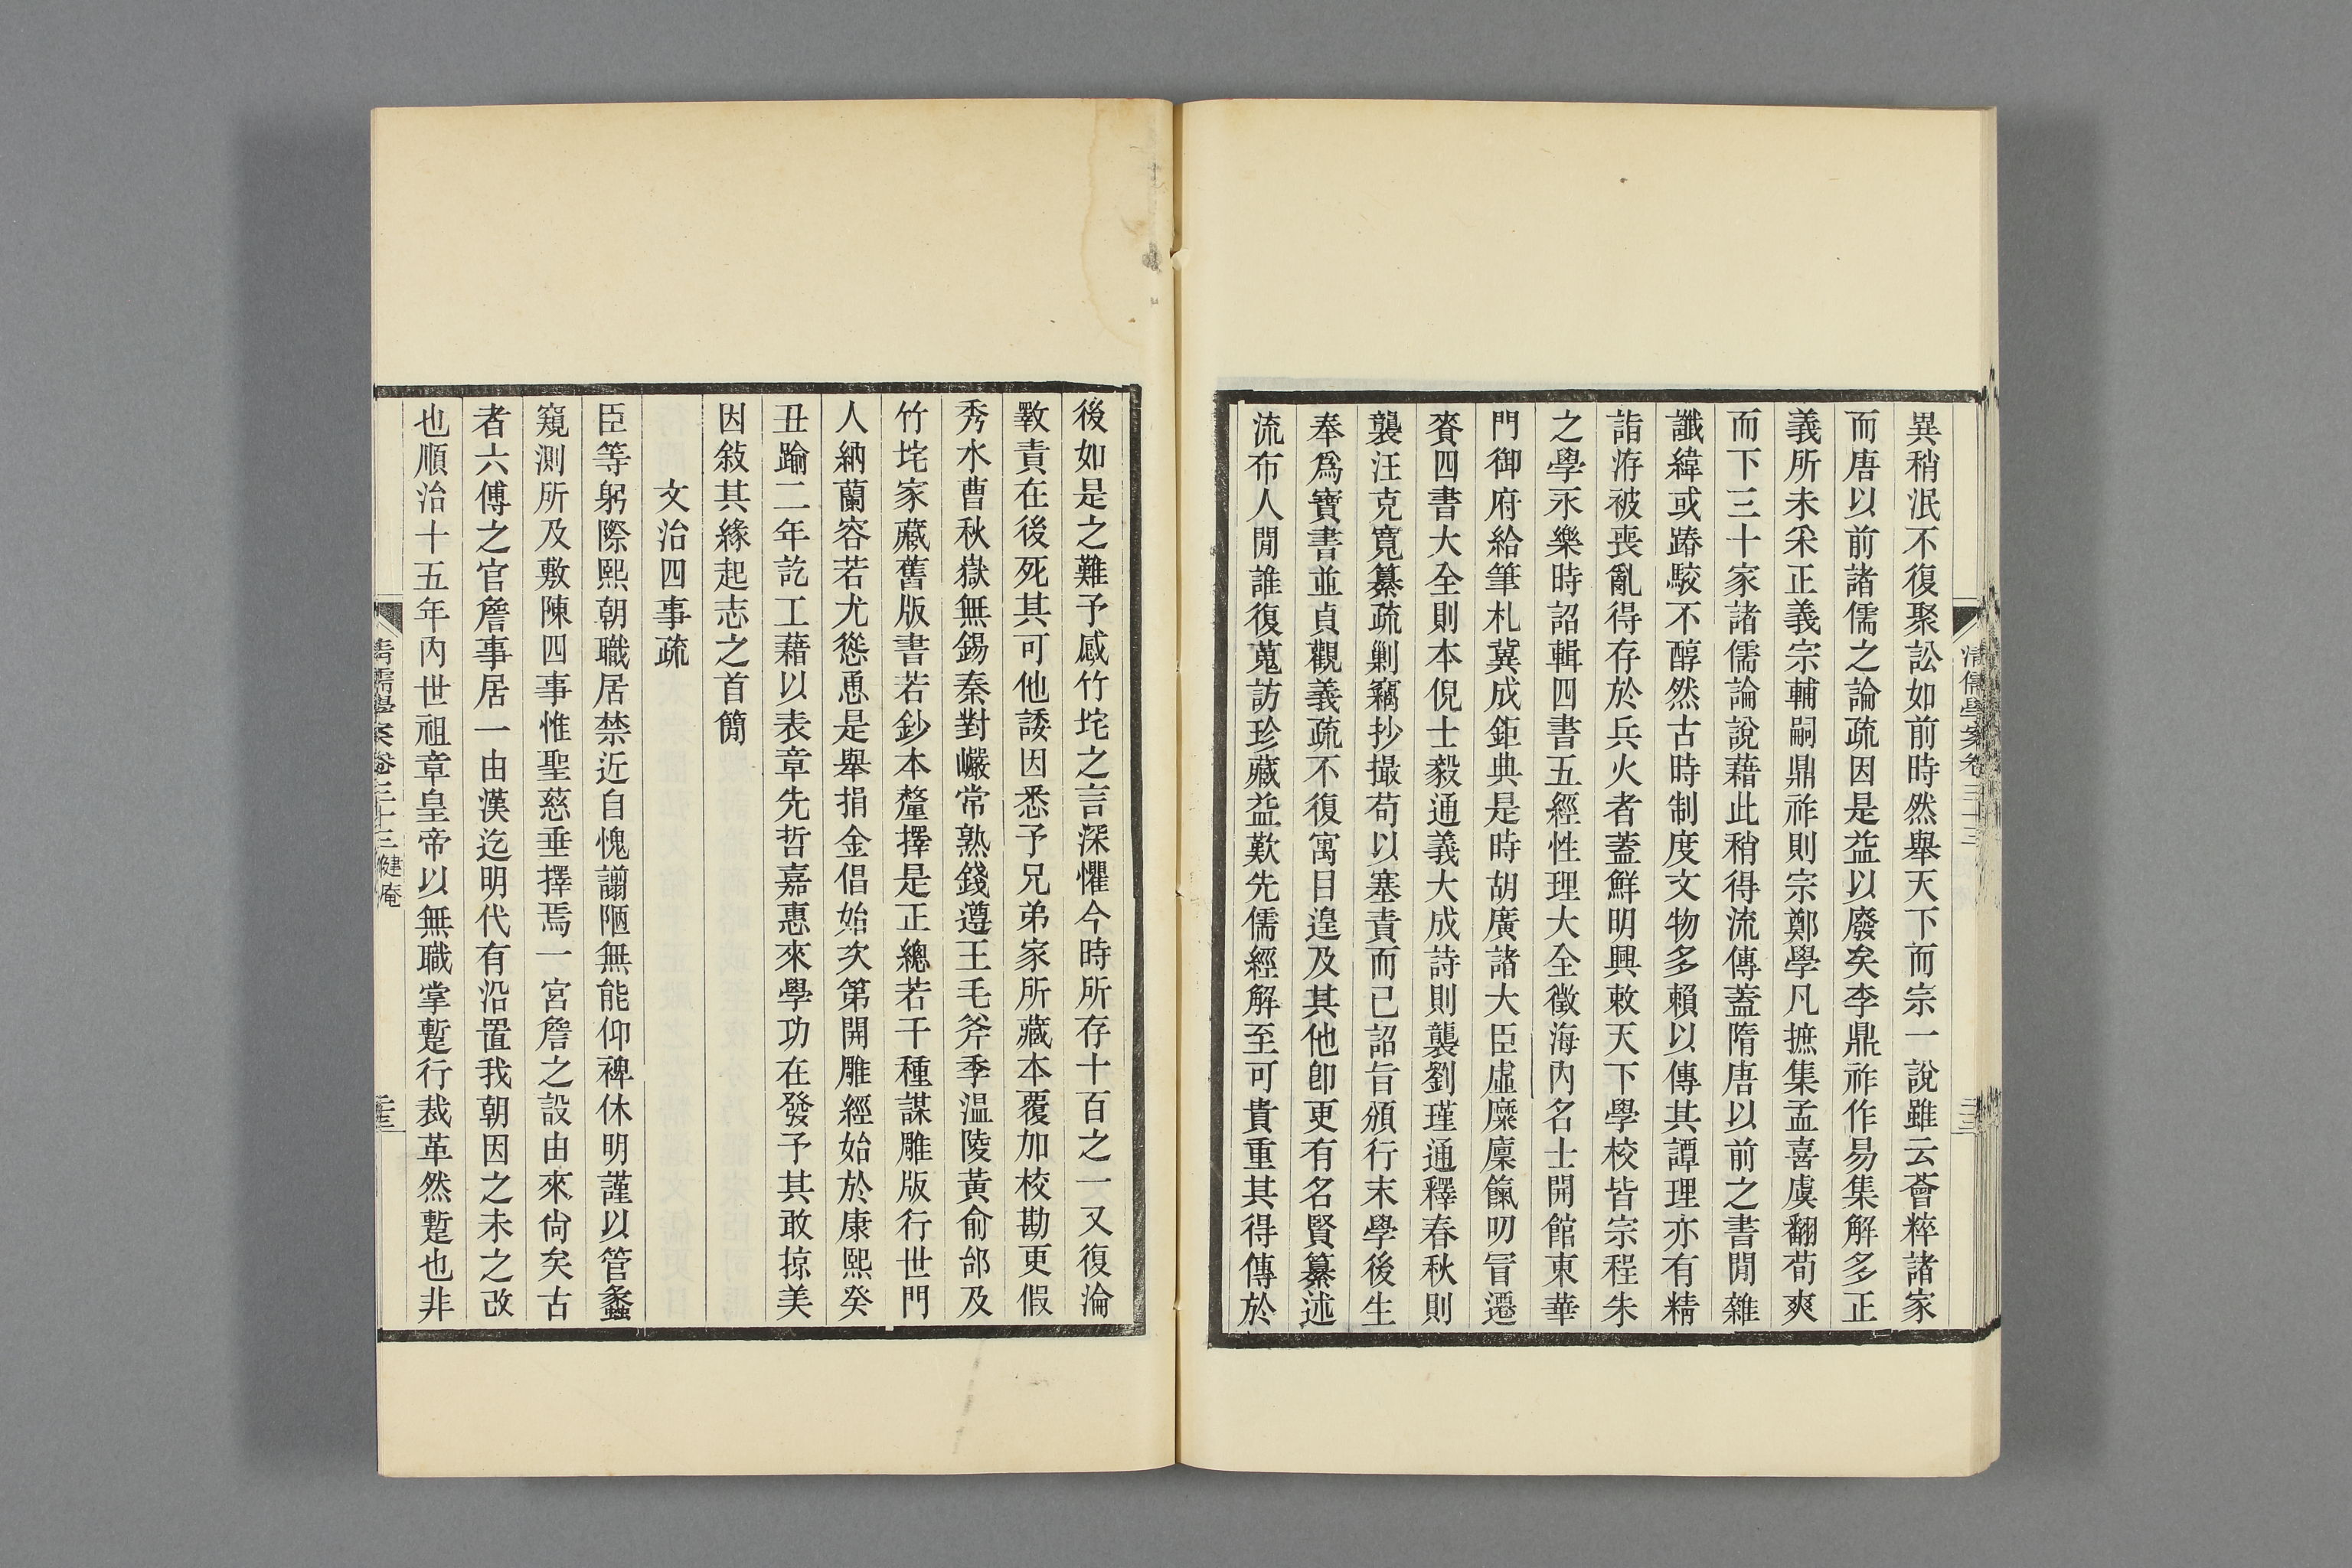 清儒學案卷三十三
異稍泯不復聚訟如前時然舉天下而宗一說雖云薈粹諸家
而唐以前諸儒之論疏因是益以廢矣李鼎祚作易集解多正
義所未采正義宗輔嗣鼎祚則宗鄭學凡摭集孟喜虞翻荀爽
而下三十家諸儒論說藉此稍得流傳蓋隋唐以前之書閒雜
讖緯或踳駮不醇然古時制度文物多賴以傳其譚理亦有精
詣洊被喪亂得存於兵火者蓋鮮明興敕天下學校皆宗程朱
之學永樂時詔輯四書五經性理大全徵海內名士開館東華
門御府給筆札冀成鉅典是時胡廣諸大臣虛糜廩餼叨冒遷
賚四書大全則本倪士毅通義大成詩則襲劉瑾通釋春秋則
襲汪克寬纂疏剿竊抄撮苟以塞責而已詔旨頒行末學後生
奉爲寶書並貞觀義疏不復寓目遑及其他卽更有名賢纂述
流布人閒誰復蒐訪珍藏益歎先儒經解至可貴重其得傳於
後如是之難予感竹垞之言深懼今時所存十百之一又復淪
斁責在後死其可他諉因悉予兄弟家所藏本覆加校勘更假
秀水曹秋嶽無錫秦對巖常熟錢遵王毛斧季溫陵黃俞邰及
竹垞家藏舊版書若鈔本釐擇是正總若干種謀雕版行世門
人納蘭容若尤慫恿是舉捐金倡始次第開雕經始於康熙癸
丑踰二年訖工藉以表章先哲嘉惠來學功在發予其敢掠美
因敍其緣起志之首簡
文治四事疏
臣等躬際熙朝職居禁近自愧譾陋無能仰裨休明謹以管蠡
窺測所及敷陳四事惟聖慈垂擇焉一宮詹之設由來尙矣古
者六傅之官詹事居一由漢迄明代有沿置我朝因之未之改
也順治十五年內世祖章皇帝以無職掌蹔行裁革然蹔也非
清儒學案卷三十三 健庵